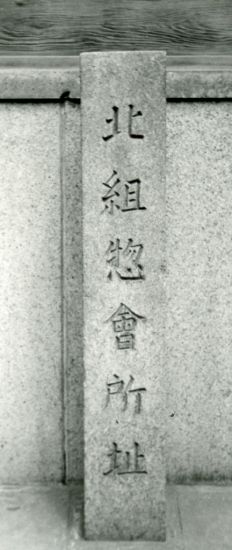 北組惣會所址